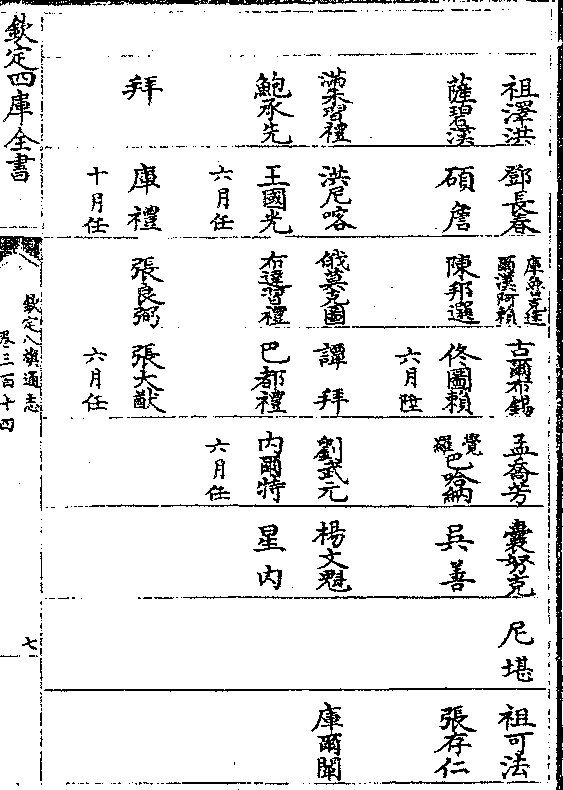 祖澤洪 鄧長春 庫魯克達爾漢阿賴 古爾布錫 孟喬芳 囊努克 尼堪 祖可法
薩碧漢 碩詹 陳邦選 佟圖賴 覺羅巴哈納 吳善 張存仁
六月陞
滿朱習禮 洪尼喀 俄莫克圖 譚拜 劉武元 楊文魁 庫爾闡
鮑承先 王國光 布達習禮 巴都禮 內爾特 星內
六月任 六月任
拜 庫禮 張良弼 張大猷
十月任 六月任
欽定四庫全書
欽定八旗通志
卷三百十四
七